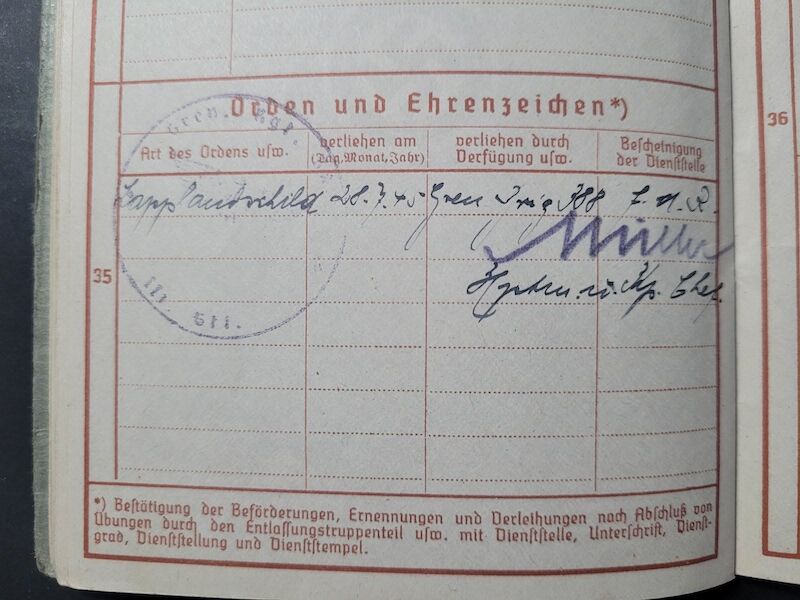 Orden und Ehrenzeichen*)
Art des Ordens usw.
verliehen am
(Tag, Monat, Jahr)
verliehen durch
Verfügung usw.
Bescheinigung
der Dienststelle
Lapplandschild 28.7.45 Gren 388 F. d. R.
Müller
Hptm. u. Kp. Chef.
35
36
Gren. Rgt.
III. Btl.
*) Bestätigung der Beförderungen, Ernennungen und Verleihungen nach Abschluß von
Übungen durch den Entlassungstruppenteil usw. mit Dienststelle, Unterschrift, Dienst-
grad, Dienststellung und Dienststempel.